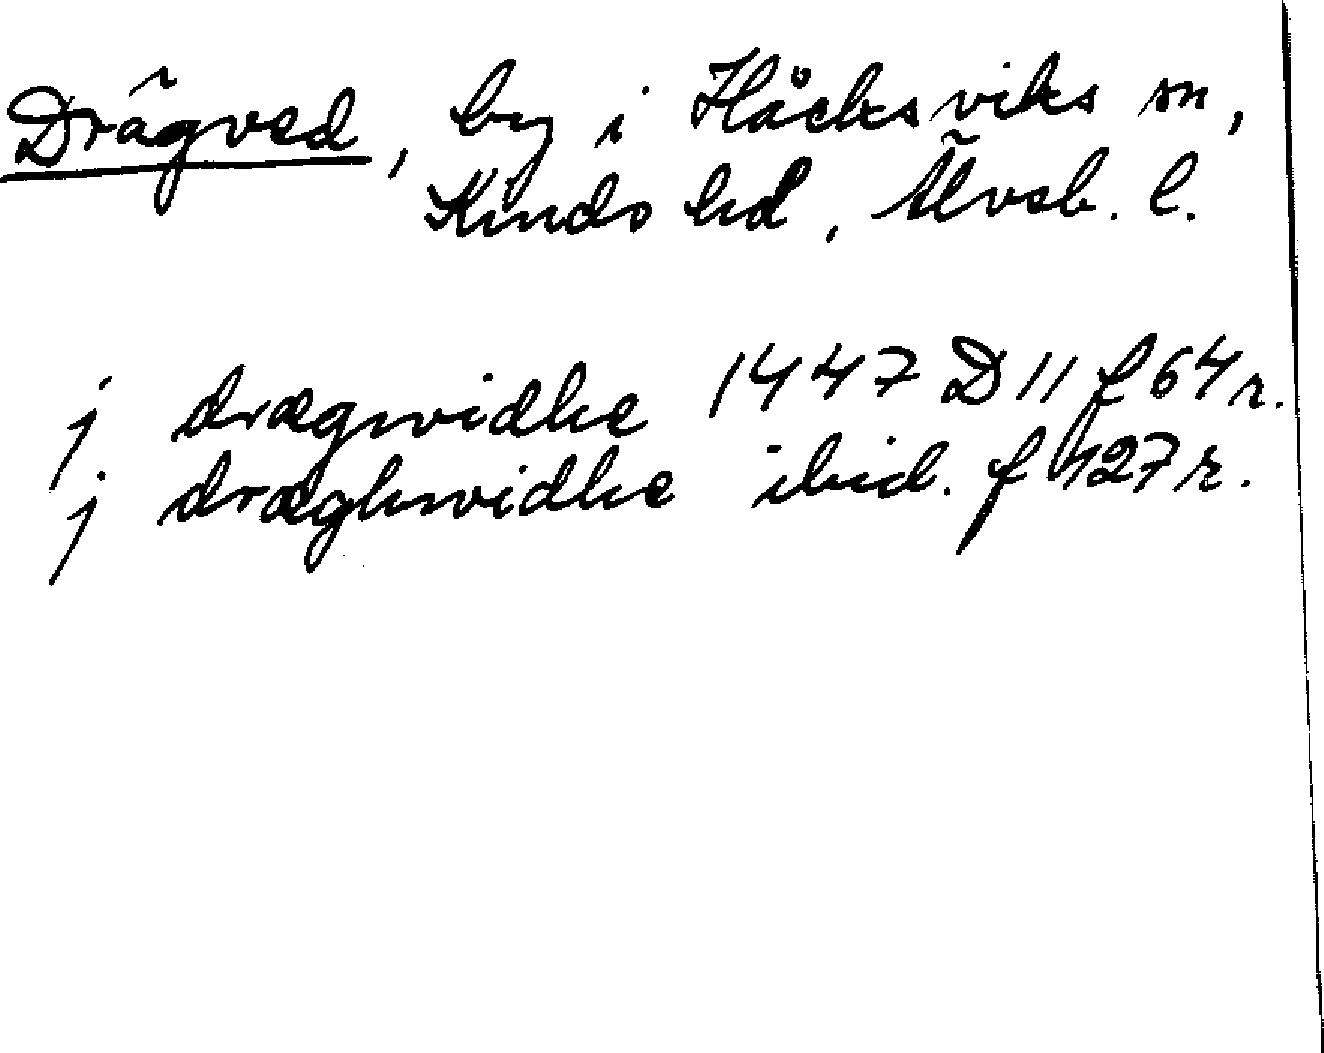 Drägved, by i Håcksviks sn,
Kinds hd, Älvsb. l.
j drægwidhe 1447 D 11 f 64 r.
j dræghwidhe ibid. f 127 r.